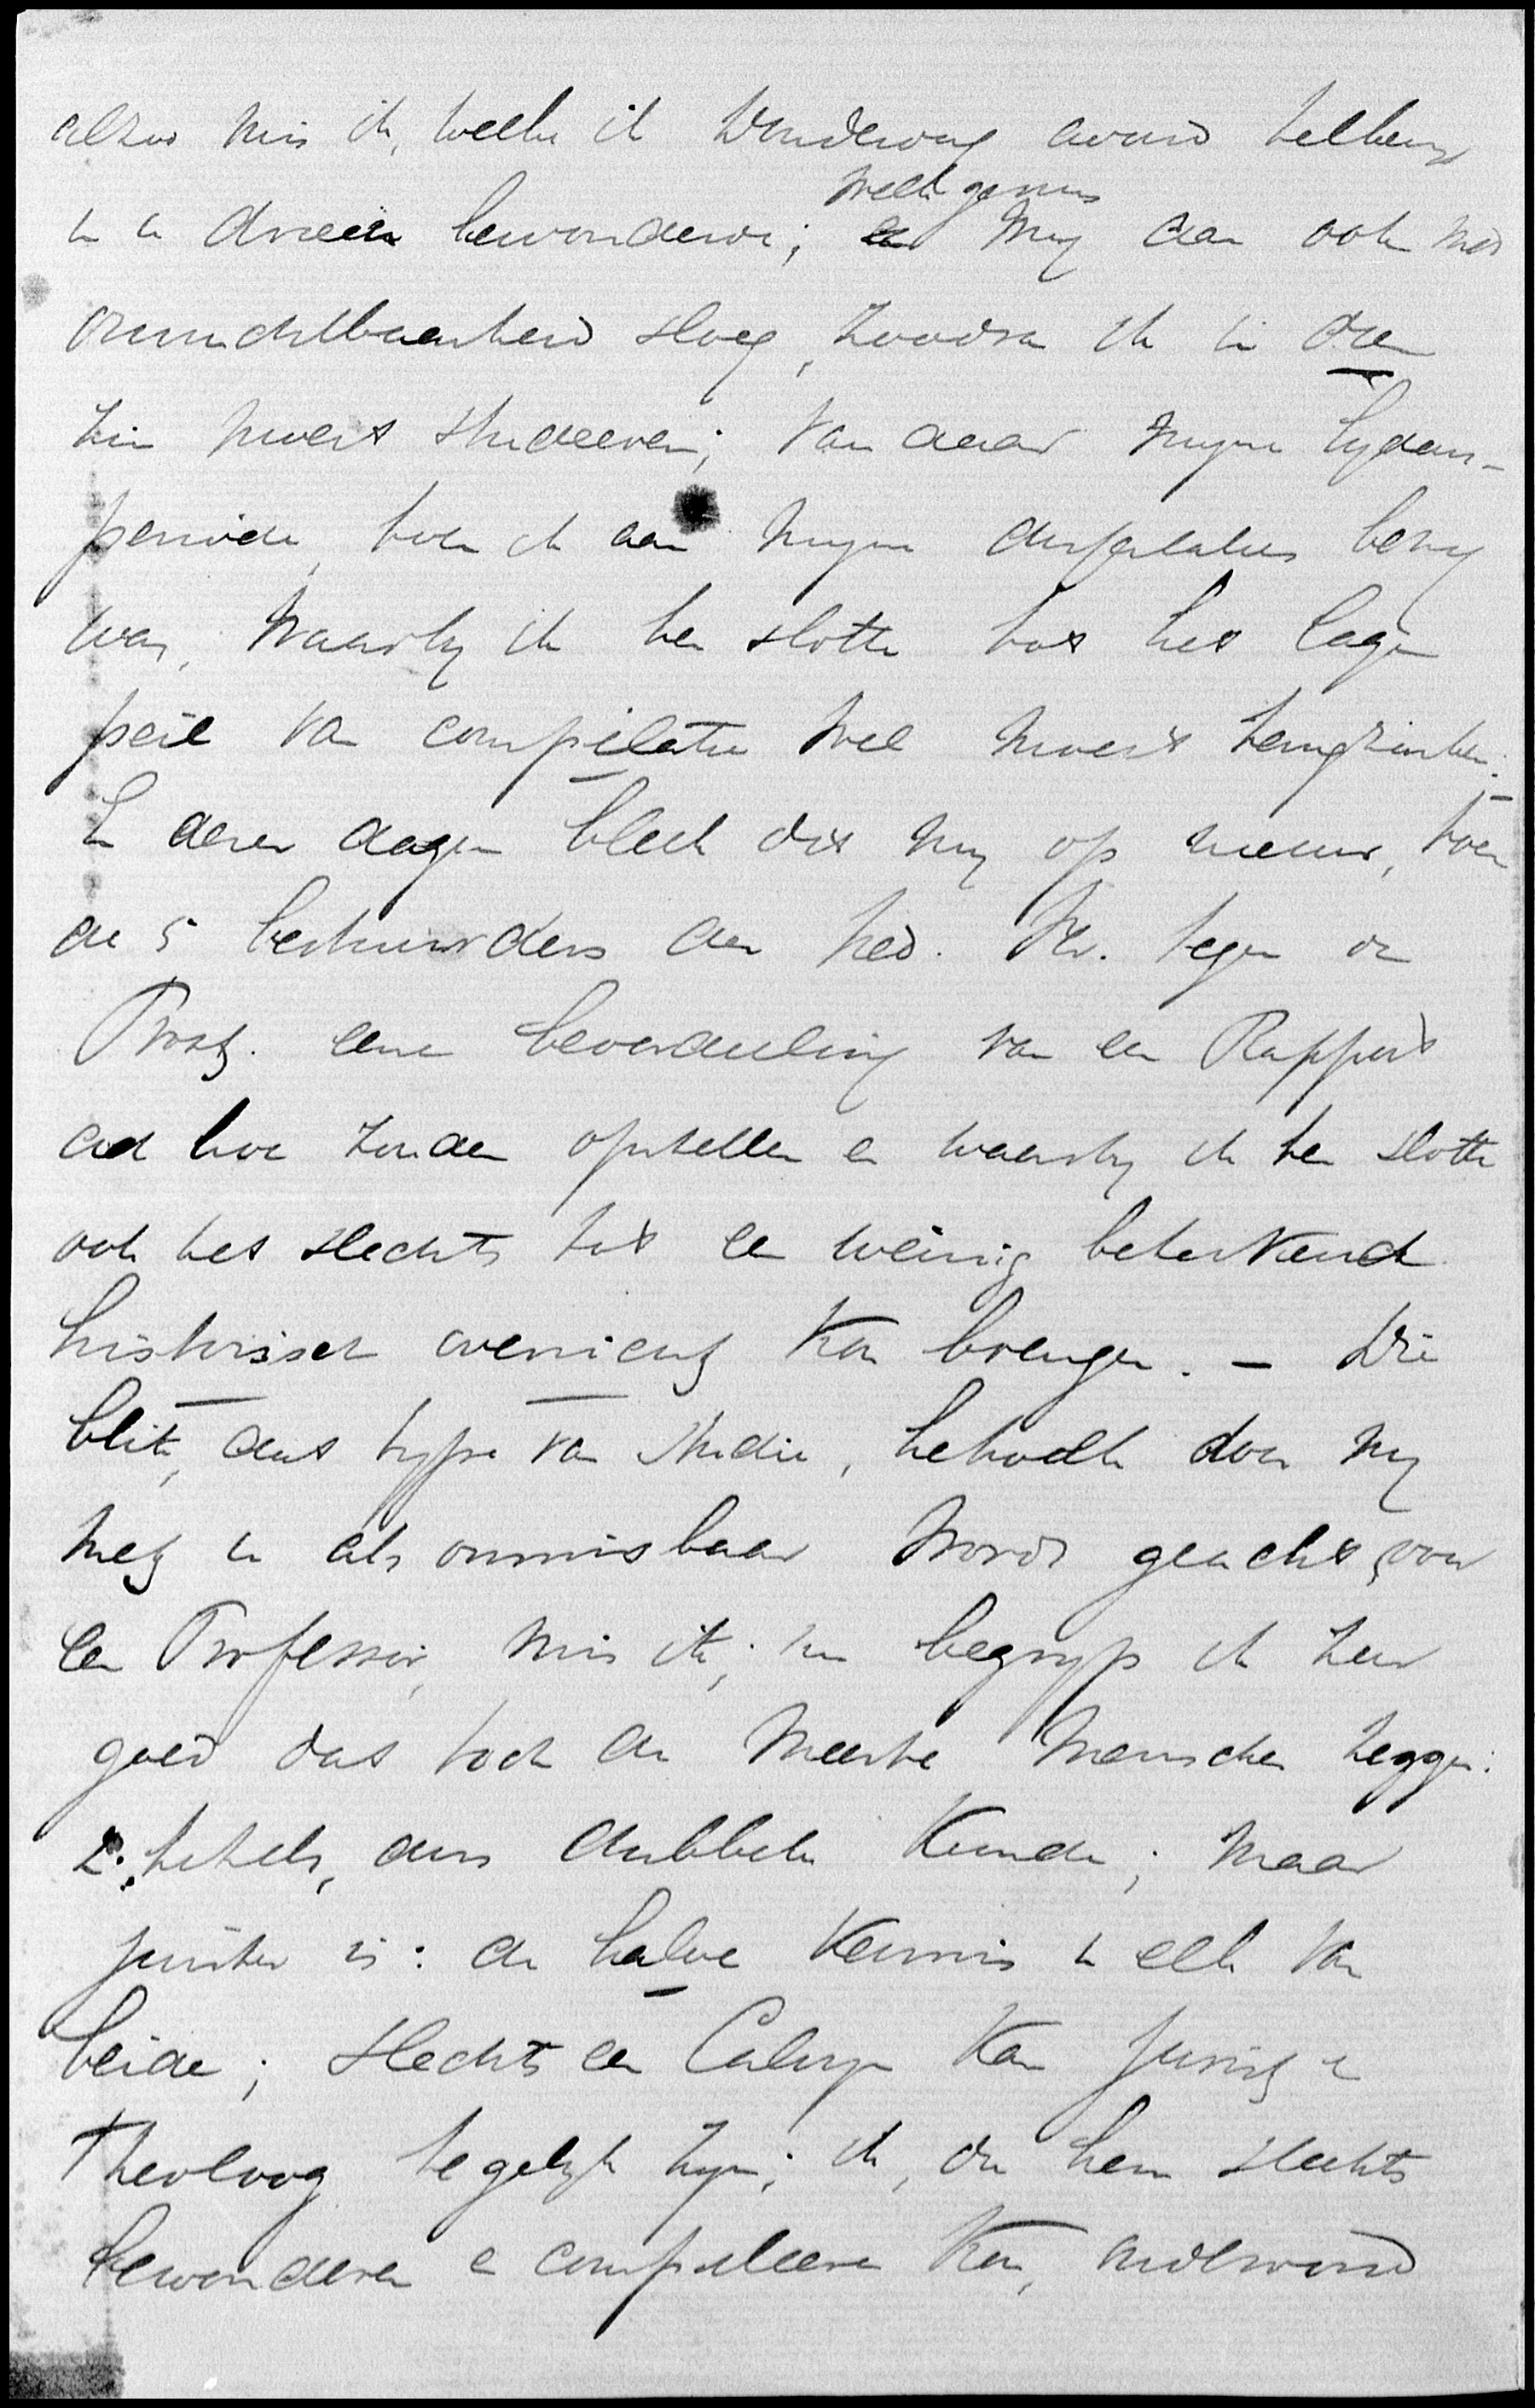 alzoo mis ik, welke ik Donderdag avond telkens
in U. Arceïn bewonderde; welk gemis
en mij dan ook met
onvruchtbaarheid sloeg, zoodra ik in die
zin moest studeeren; van daar mijne lijdens-
periode, toen ik aan mijne dissertatie bezig
was, waarbij ik ten slotte tot het lage
peil van compilatie wel moest terugzinken.
In dezen dagen bleek dit mij op nieuw, toen
de 5 bestuurders der Ned. Ver. tegen de
Prost. eene beoordeeling van een Rapport
ad hoc zouden opstellen en waarbij ik ten slotte
ook het slechts tot een weinig beteekenend
historisch overzicht kon brengen. – Die
blik, dat type van studie, hetwelk door mij
met U als onmisbaar wordt geacht voor
een Professor, mis ik; nu begrijp ik zeer
goed dat toch de meeste menschen zeggen:
2 titels, dus dubbele kunde; maar
juister is: de halve kennis in elk van
beide; slechts een Calvijn kan jurist en
Theoloog tegelijk zijn; ik, die hem slechts
bewonderen en compileeren kan,